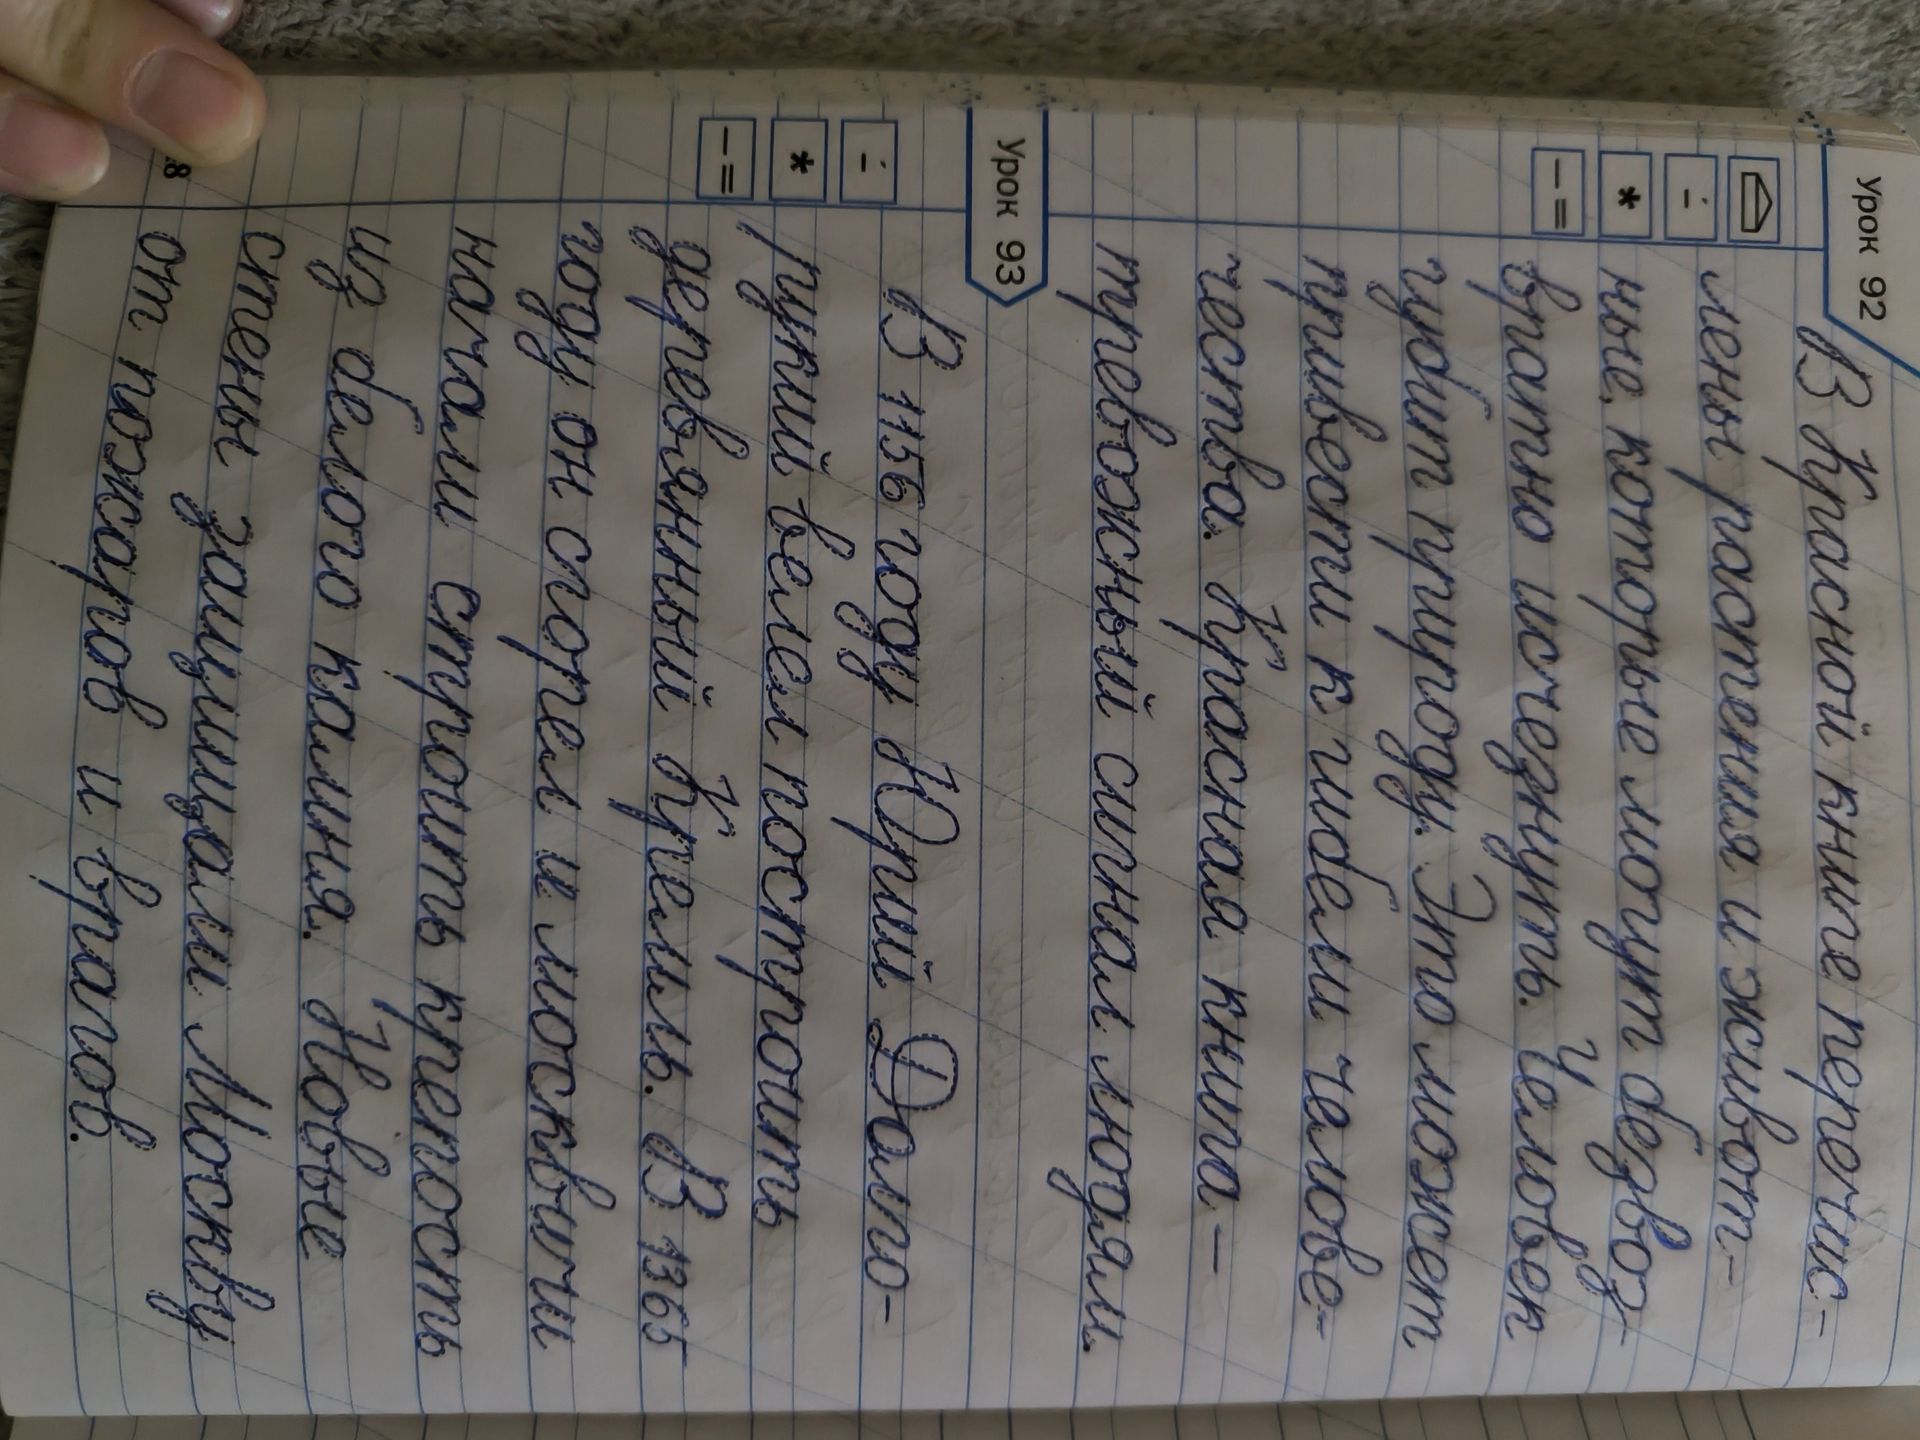 Урок 92
В Красной книге перечис-
лены растения и живот-
ные, которые могут безвоз-
вратно исчезнуть. Человек
губит природу. Это может
привести к гибели челове-
чества. Красная книга –
тревожный сигнал людям.
Урок 93
В 1156 году Юрий Долго-
рукий велел построить
деревянный Кремль. В 1365
году он сгорел и москвичи
начали строить крепость
из белого камня. Новые
стены защищали Москву
от пожаров и врагов.